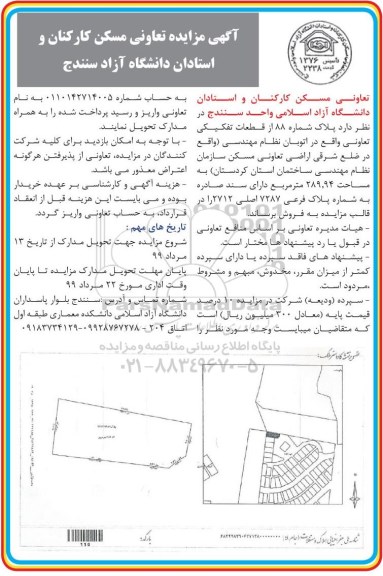 آگهی مزایده تعاونی مسکن کارکنان و
استادان دانشگاه آزاد سنندج
تاسیس ۱۳۷۶
ثبت ۲۳۳۸
تعاونی مسکن کارکنان و استادان
دانشگاه آزاد اسلامی واحد سنندج در
نظر دارد پلاک شماره ۸۸ از قطعات تفکیکی
تعاونی واقع در اتوبان نظام مهندسی (واقع
در ضلع شرقی اراضی تعاونی مسکن سازمان
نظام مهندسی ساختمان استان کردستان) به
مساحت ۲۸۹,۹۴ مترمربع دارای سند صادره
به شماره پلاک فرعی ۷۲۸۷ اصلی ۲۷۱۲را در
قالب مزایده به فروش برساند.
- هیات مدیره تعاونی بر اساس منافع تعاونی
در قبول یا رد پیشنهاد ها مختار است.
- پیشنهاد های فاقد سپرده یا دارای سپرده
کمتر از میزان مقرر، مخدوش، مبهم و مشروط
مردود است.
- سپرده (ودیعه) شرکت در مزایده ۱۰ درصد
قیمت پایه (معادل ۳۰۰ میلیون ریال) است
که متقاضیان میبایست وجه مورد نظر را
به حساب شماره ۰۱۱۰۱۴۲۷۱۴۰۰۵ به نام
تعاونی واریز و رسید پرداخت شده را به همراه
مدارک تحویل نمایند.
- با توجه به امکان بازدید برای کلیه شرکت
کنندگان در مزایده، تعاونی از پذیرفتن هرگونه
اعتراض معذور می باشد.
- هزینه آگهی و کارشناسی بر عهده خریدار
بوده و می بایست این هزینه قبل از انعقاد
قرارداد، به حساب تعاونی واریز گردد.
تاریخ های مهم :
شروع مزایده جهت تحویل مدارک از تاریخ ۱۳
مرداد ۹۹
پایان مهلت تحویل مدارک مزایده تا پایان
وقت اداری مورخ ۲۲ مرداد ۹۹
شماره تماس و آدرس سنندج بلوار پاسداران
دانشگاه آزاد اسلامی دانشکده معماری طبقه اول
اتاق ۲۰۴ - ۰۹۹۲۸۷۶۷۷۷۸-۰۹۱۸۳۷۳۴۱۲۹
پایگاه اطلاع رسانی مناقصه و مزایده
۰۲۱-۸۸۳۴۹۶۷۰-۵